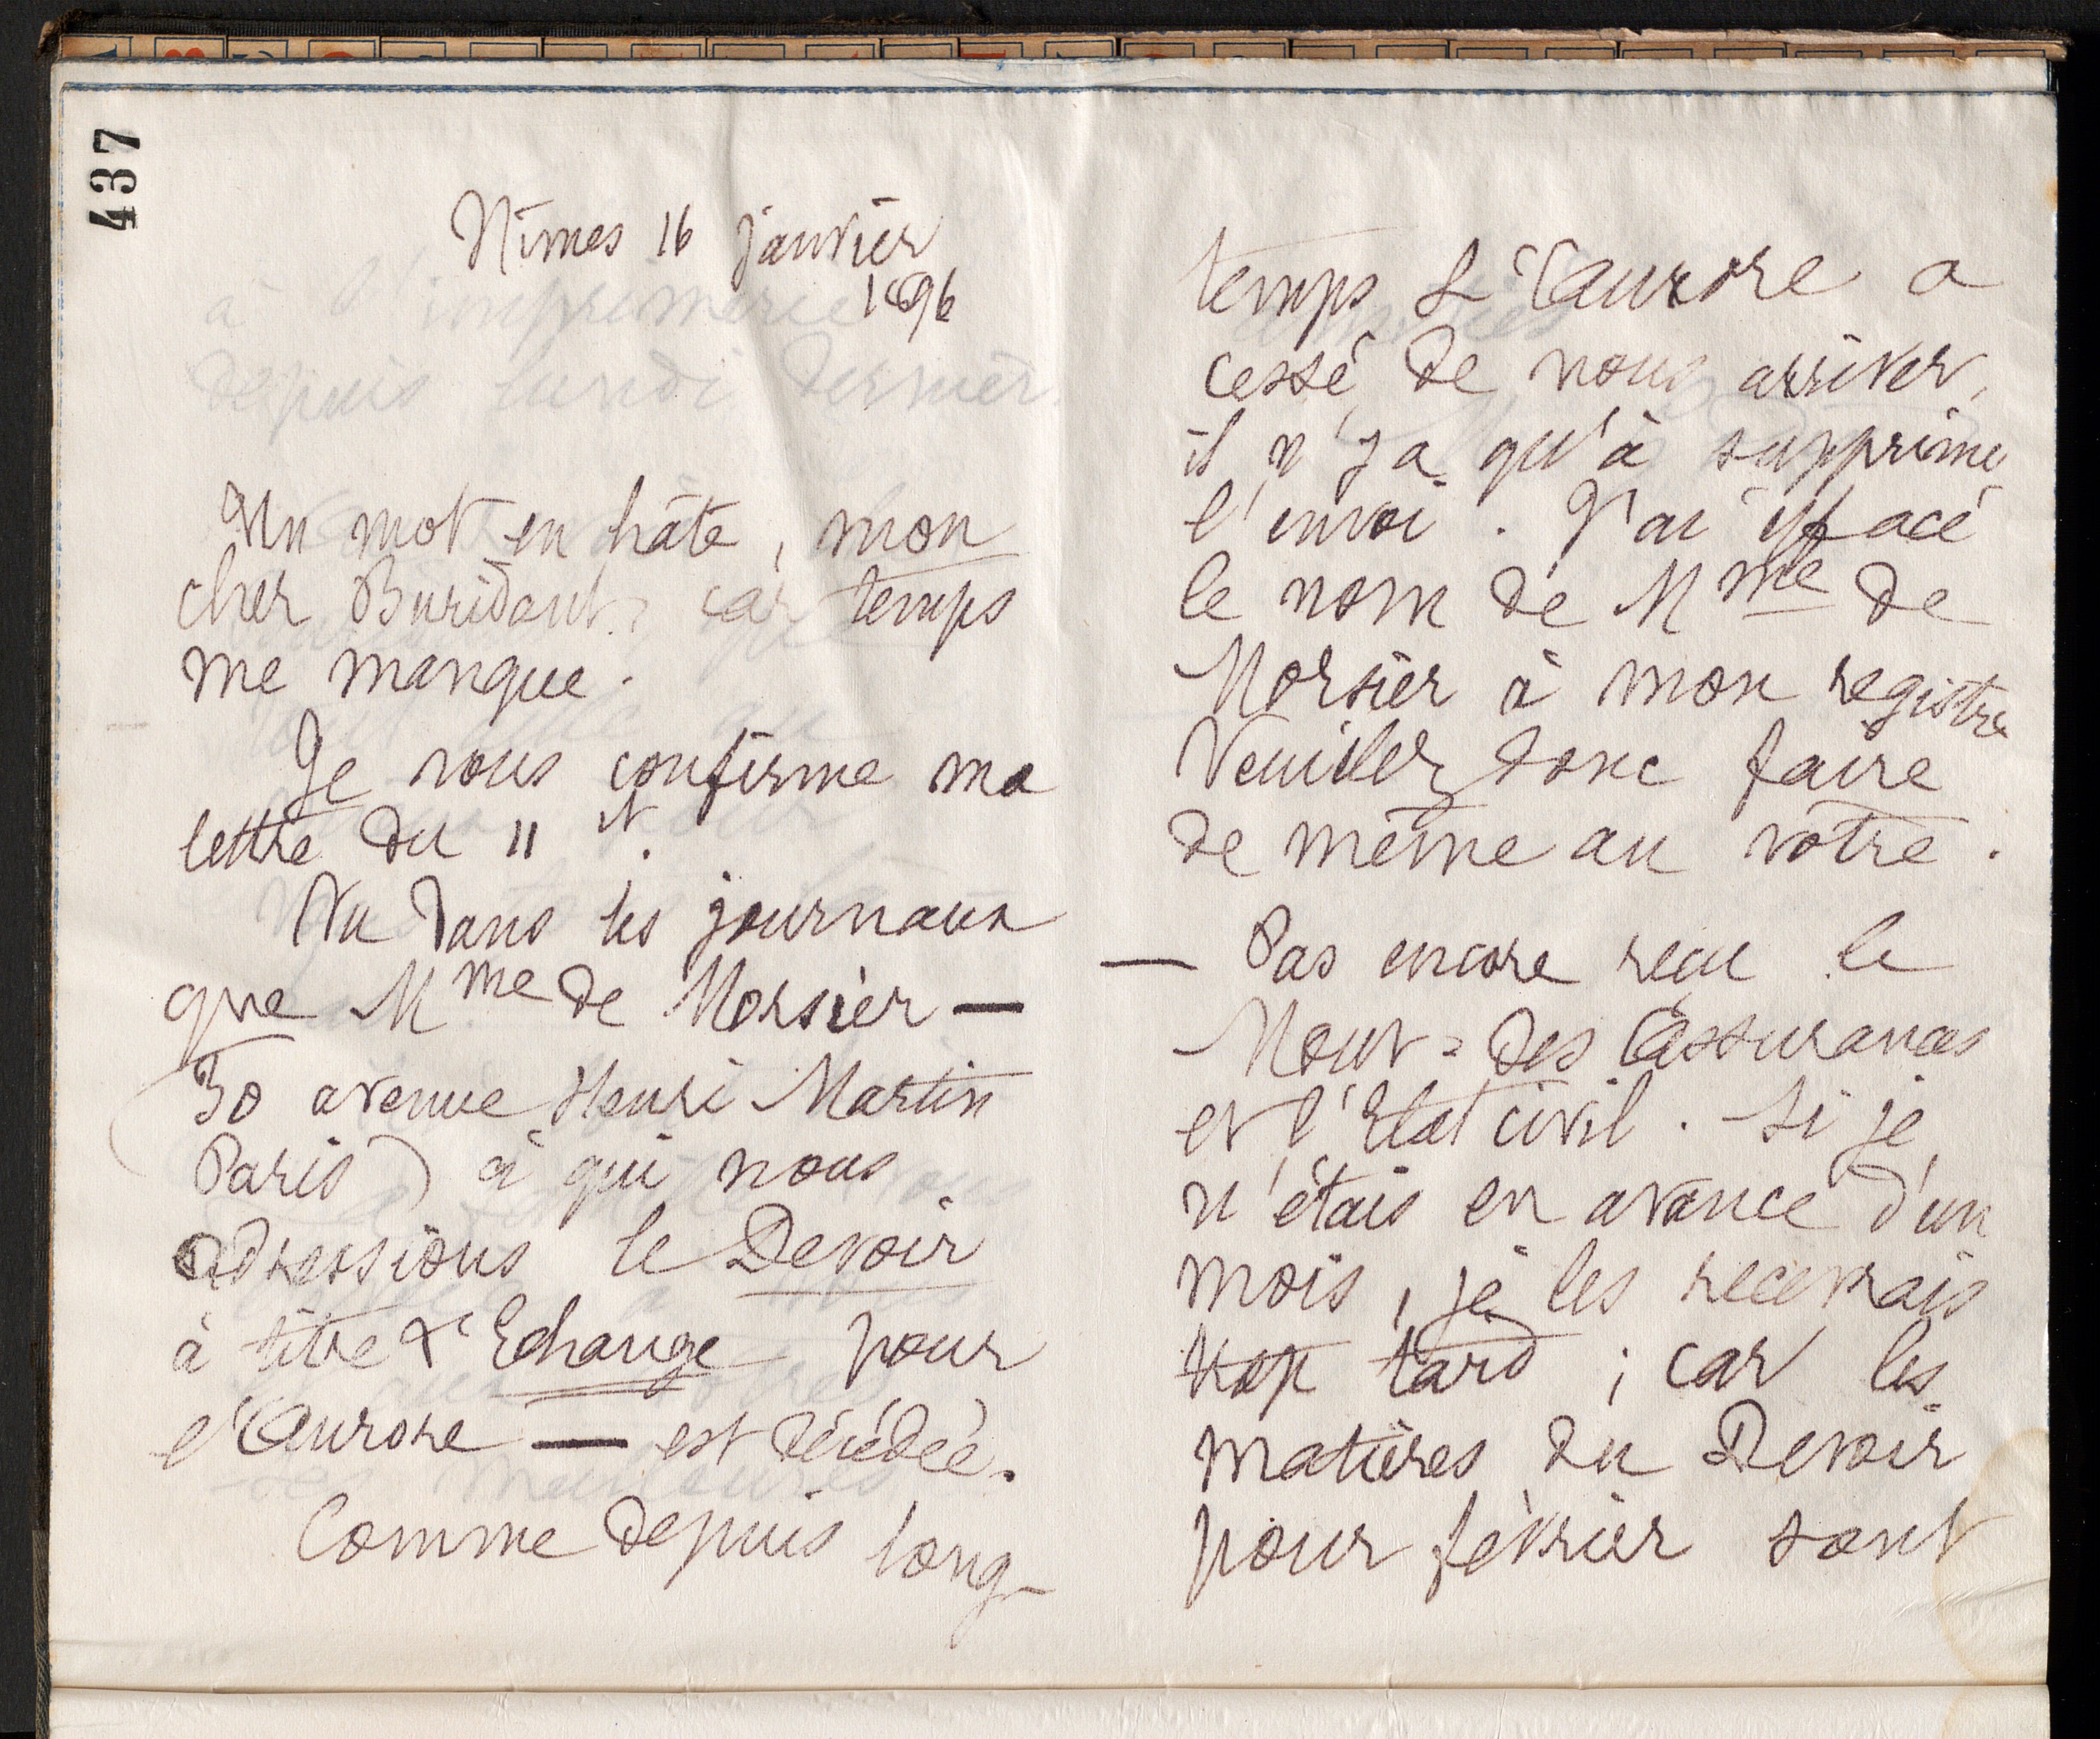 437
Nîmes 16 janvier
1896
Un mot en hâte, mon
cher Buridant, car temps
me manque.
Je vous confirme ma
lettre du 11 ct.
Vu dans les journaux
que Mme de Morsier —
(30 avenue Henri Martin
Paris) à qui nous
adressions le Devoir
à titre d'Echange pour
l'Aurore — est décédée.
Comme depuis long-
temps L'Aurore a
cessé de nous arriver,
il n'y a qu'à supprimer
l'envoi. J'ai effacé
le nom de Mme de
Morsier à mon registre
Veuillez donc faire
de même au vôtre.
— Pas encore reçu le
Mouvt des Assurances
et l'Etat civil. Si je
n'étais en avance d'un
mois, je les recevrais
trop tard ; car les
matières du Devoir
pour février sont